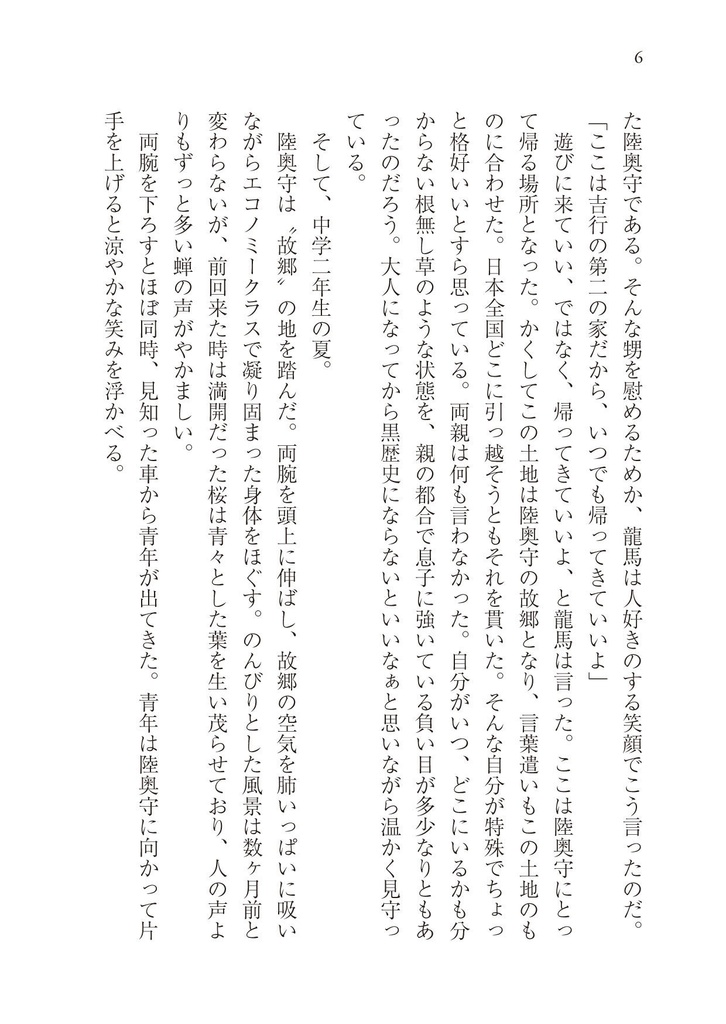 6
た陸奥守である。そんな甥を慰めるためか、龍馬は人好きのする笑顔でこう言ったのだ。
「ここは吉行の第二の家だから、いつでも帰ってきていいよ」
遊びに来ていい、ではなく、帰ってきていいよ、と龍馬は言った。ここは陸奥守にとっ
て帰る場所となった。かくしてこの土地は陸奥守の故郷となり、言葉遣いもこの土地のも
のに合わせた。日本全国どこに引っ越そうともそれを貫いた。そんな自分が特殊でちょっ
と格好いいとすら思っている。両親は何も言わなかった。自分がいつ、どこにいるかも分
からない根無し草のような状態を、親の都合で息子に強いている負い目が多少なりともあ
ったのだろう。大人になってから黒歴史にならないといいなぁと思いながら温かく見守っ
ている。
そして、中学二年生の夏。
陸奥守は〝故郷〟の地を踏んだ。両腕を頭上に伸ばし、故郷の空気を肺いっぱいに吸い
ながらエコノミークラスで凝り固まった身体をほぐす。のんびりとした風景は数ヶ月前と
変わらないが、前回来た時は満開だった桜は青々とした葉を生い茂らせており、人の声よ
りもずっと多い蝉の声がやかましい。
両腕を下ろすとほぼ同時、見知った車から青年が出てきた。青年は陸奥守に向かって片
手を上げると涼やかな笑みを浮かべる。